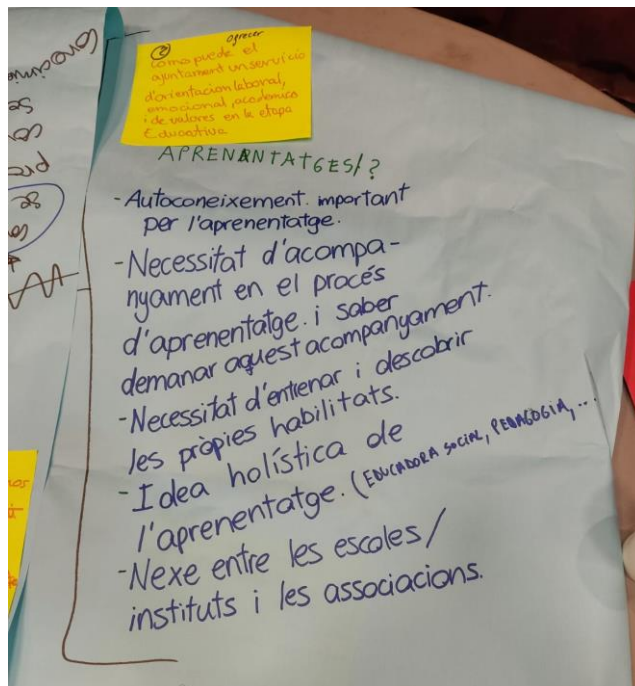 ② ofrecer
Como puede el
ajuntament un servicio
d'orientacion laboral,
emocional, academico
i de valores en la etapa
Educativa
APRENENTATGES/?
- Autoconeixement. important
per l'aprenentatge.
- Necessitat d'acompa-
nyament en el procés
d'aprenentatge. i saber
demanar aquest acompanyament.
- Necessitat d'entrenar i descobrir
les pròpies habilitats.
- Idea holística de
l'aprenentatge. (EDUCADORA SOCIAL, PEDAGOGIA, ...
- Nexe entre les escoles/
instituts i les associacions.